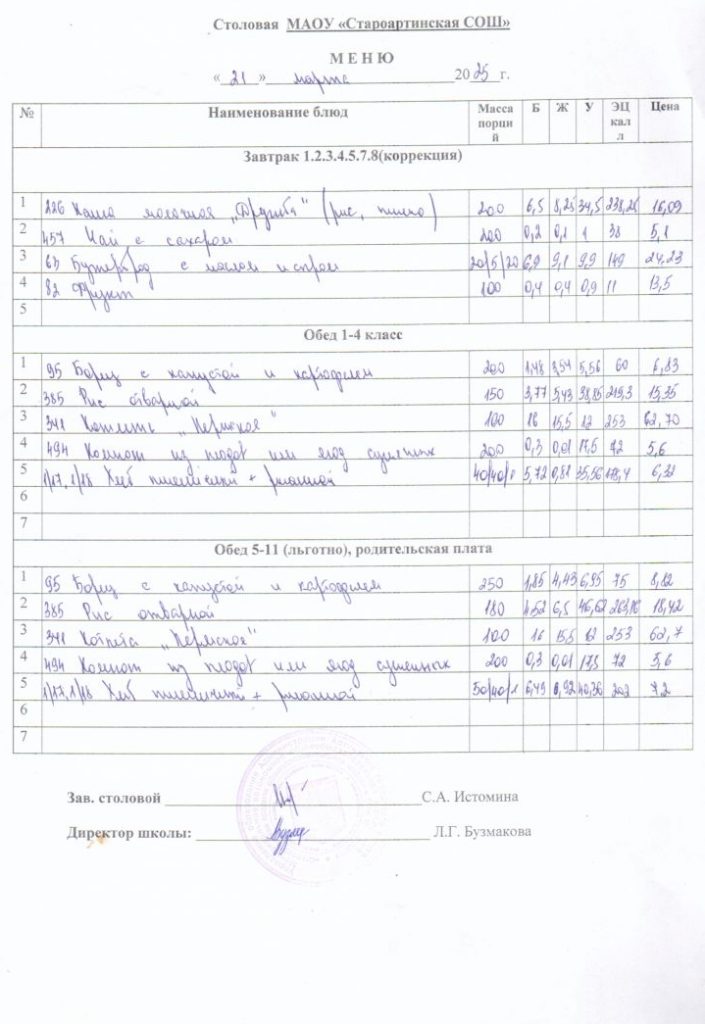 Столовая МАОУ «Староартинская СОШ»
МЕНЮ
«21» марта 2025 г.
№ Наименование блюд Масса порций Б Ж У ЭЦ калл Цена
Завтрак 1.2.3.4.5.7.8(коррекция)
1 226 Каша молочная „Дружба" (рис, пшено) 200 6,5 8,25 34,5 238,25 16,09
2 457 Чай с сахаром 200 0,2 0,1 38 5,1
3 63 Бутерброд с маслом и сыром 20/5/20 6,9 9,1 9,9 149 24,23
4 82 Фрукт 100 0,4 0,4 0,9 11 13,5
5
Обед 1-4 класс
1 95 Борщ с капустой и картофелем 200 1,48 3,54 5,56 60 6,83
2 385 Рис отварной 150 3,77 5,43 38,85 219,3 15,35
3 341 Котлеты „Пермское" 100 16 15,5 12 253 62,70
4 494 Компот из плодов или ягод сушеных 200 0,3 0,01 17,5 72 5,6
5 1/17,1/18 Хлеб пшеничный + ржаной 5,72 0,81 35,56 178,4
6
7
Обед 5-11 (льготно), родительская плата
1 95 Борщ с капустой и картофелем 250 1,85 4,43 6,95 75 8,82
2 385 Рис отварной 180 4,52 6,5 46,62 18,42
3 341 Котлета „Пермское" 100 16 15,5 12 253 62,7
4 494 Компот из плодов или ягод сушенных 200 0,3 0,01 17,5 72 5,6
5 1/17,1/18 Хлеб пшеничный + ржаной 6,49 0,92 40,36 202 7,2
6
7
Зав. столовой С.А. Истомина
Директор школы: Л.Г. Бузмакова